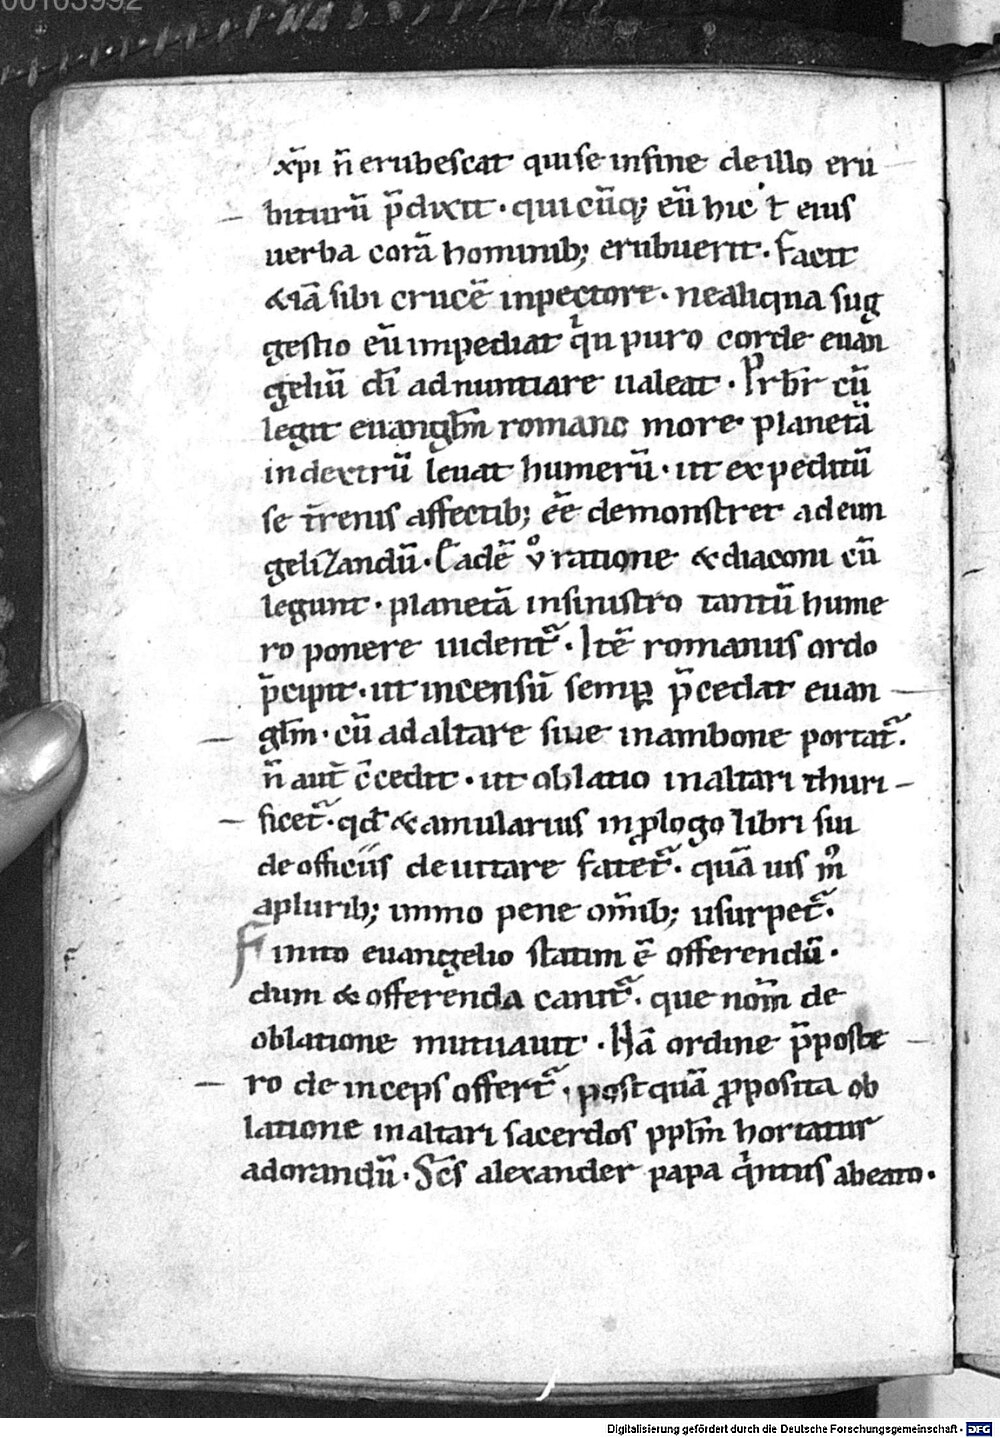 00103992
xp̄i n̄ erubescat qui se in fine de illo eru
biturū p̄dixit · qui cūq; eū hic ƚ eius
uerba corā hominib; erubuerit · Facit
&iā sibi crucē in pectore · ne aliqua sug
gestio eū impediat qͥn puro corde euan
geliū dī adnuntiare ualeat · Prb̄r cū
legit euangl̄m romano more planetā
in dextrū leuat humerū · ut expeditū
se t̄renis affectib; eē demonstret ad euu
gelizandū · Eadē v̊ ratione & diaconi cū
legunt · planetā in sinistro tantū hume
ro ponere uident᷑ · Itē romanus ordo
p̄cipit · ut incensū semꝑ p̄cedat euan
gl̄m · cū ad altare siue in ambone portat᷑ ·
n̄ aut̄ c̄cedit · ut oblatio in altari thuri
ficet᷑ · qđ & amularius in ꝓlogo libri sui
de officiis deuitare fatet᷑ · quā uis m̊
a plurib; immo pene om̄ib; usurpet᷑ ·
Finito euangelio statim ē offerendū ·
dum & offerenda canit᷑ · que nom̄ de
oblatione mutuauit · Hā ordine p̄poste
ro de inceps offert᷑ · postquā ꝓposita ob
latione in altari sacerdos ppl̄m hortatur
ad orandū · Sc̄s alexander papa qͥntus a beato ·
Digitalisierung gefördert durch die Deutsche Forschungsgemeinschaft - DFG